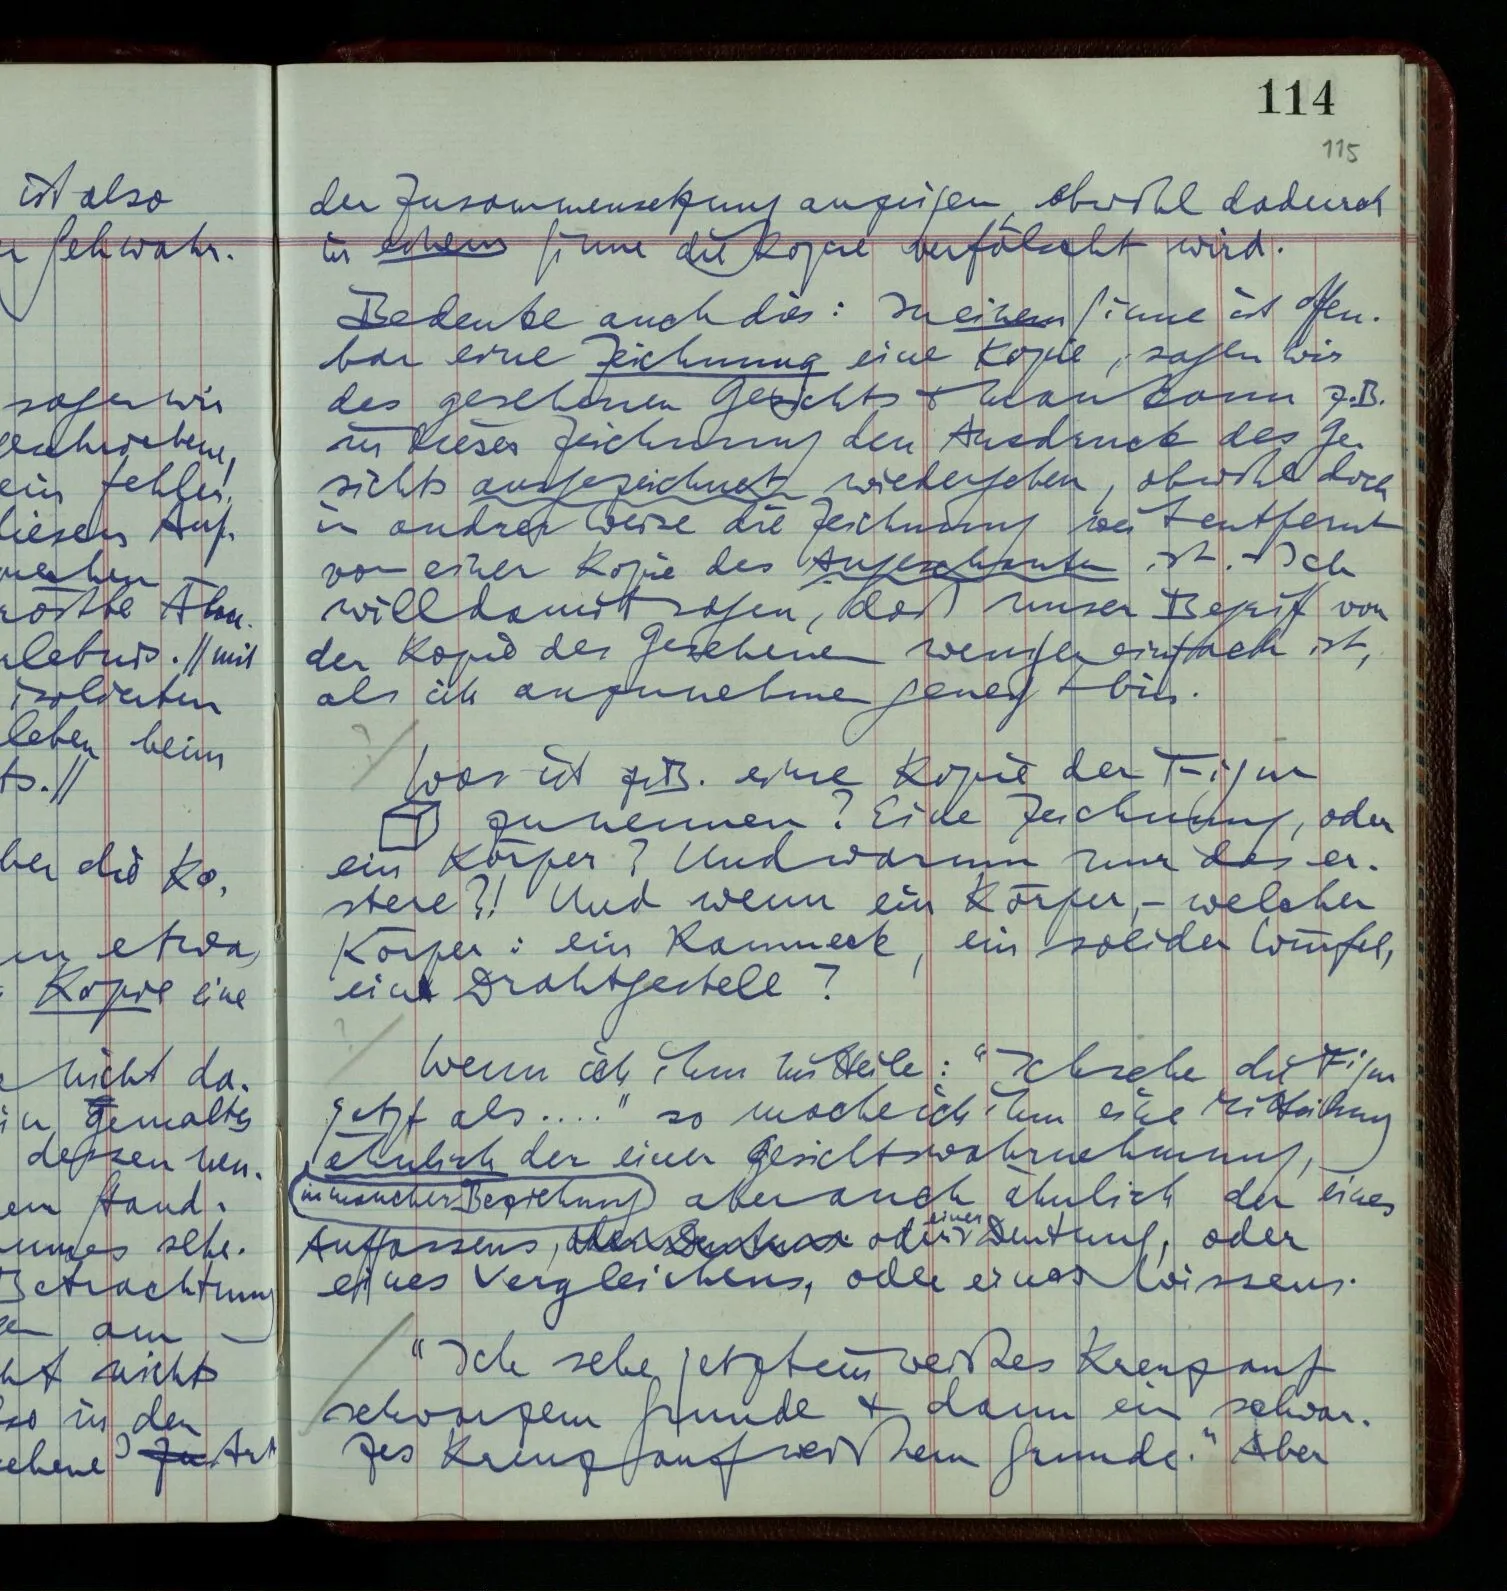 ist also
Gehwahr.
sagen wir
geschriebene,
ein Fehler.
diesem Auf-
machen
größte Ähn-
lebnis. // mit
isolierten
leben beim
ts. //
ber die Ko-
etwa
Kopie eine
nicht da-
gemaltes
dessen
Stand-
sehe.
Betrachtung
am
nicht
so in den
sehene Art
114
115
der Zusammensetzung anzeigen, obwohl dadurch
in einem Sinne die Kopie verfälscht wird.
Bedenke auch dies: In einem Sinne ist offen-
bar eine Zeichnung eine Kopie, sagen wir
des gesehenen Gesichts & man kann z.B.
in dieser Zeichnung den Ausdruck des Ge-
sichts ausgezeichnet wiedergeben, obwohl doch
in andrer Weise die Zeichnung weit entfernt
von einer Kopie des Angeschauten ist. – Ich
will damit sagen, daß unser Begriff von
der Kopie des Gesehenen weniger einfach ist,
als ich anzunehmen geneigt bin.
?/
Was ist z.B. eine Kopie der Figur
zu nennen? Eine Zeichnung, oder
ein Körper? Und warum nur das er-
stere?! Und wenn ein Körper, – welcher
Körper: ein Rammeck, ein solider Würfel,
ein Drahtgestell?
?/
Wenn ich ihm mitteile: "Ich sehe die Figur
jetzt als...." so mache ich ihm eine Mitteilung
ähnlich der einer Gesichtswahrnehmung,
in mancher Beziehung aber auch ähnlich der eines
einer
Auffassens, oder Deutung, oder
eines Vergleichens, oder eines Wissens.
/
"Ich sehe jetzt ein weißes Kreuz auf
schwarzem Grunde & dann ein schwar-
zes Kreuz auf weißem Grunde." Aber